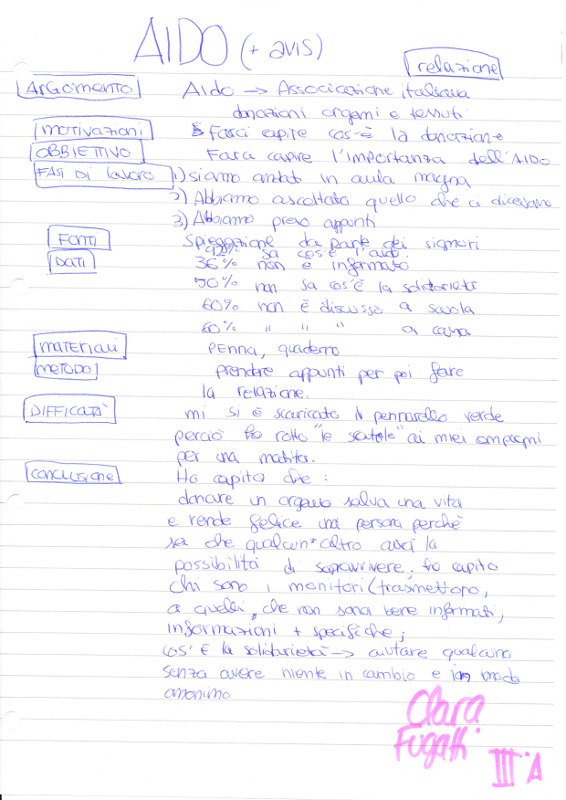 AIDO (+ avis)
relazione
Argomento Aido → Associazione italiana
donazioni organi e tessuti
MOTIVAZIONI Farci capire cos'è la donazione
OBBIETTIVO Farci capire l'importanza dell'AIDO
FASI DI lavoro 1) siamo andati in aula magna
2) Abbiamo ascoltato quello che ci dicevano
3) Abbiamo preso appunti
FONTI Spiegazione da parte dei signori
92% sa cos'è l'aido.
DATI 36% non è informato
50% non sa cos'è la solidarietà
60% non è discusso a scuola
60% " " " a casa
MATERIALI penna, quaderno
METODO prendre appunti per poi fare
la relazione.
DIFFICOLTÀ mi si è scaricato il pennarello verde
perciò ho rotto "le scatole" ai miei compagni
per una matita.
CONCLUSIONE Ho capito che:
donare un organo salva una vita
e rende felice una persona perchè
sa che qualcun'altro avrà la
possibilità di sopravvivere; ho capito
chi sono i monitori (trasmettono,
a quelli, che non sono bene informati,
informazioni + specifiche;
cos'è la solidarietà → aiutare qualcuno
senza avere niente in cambio e in modo
anonimo
Clara
Fugatti
III°A